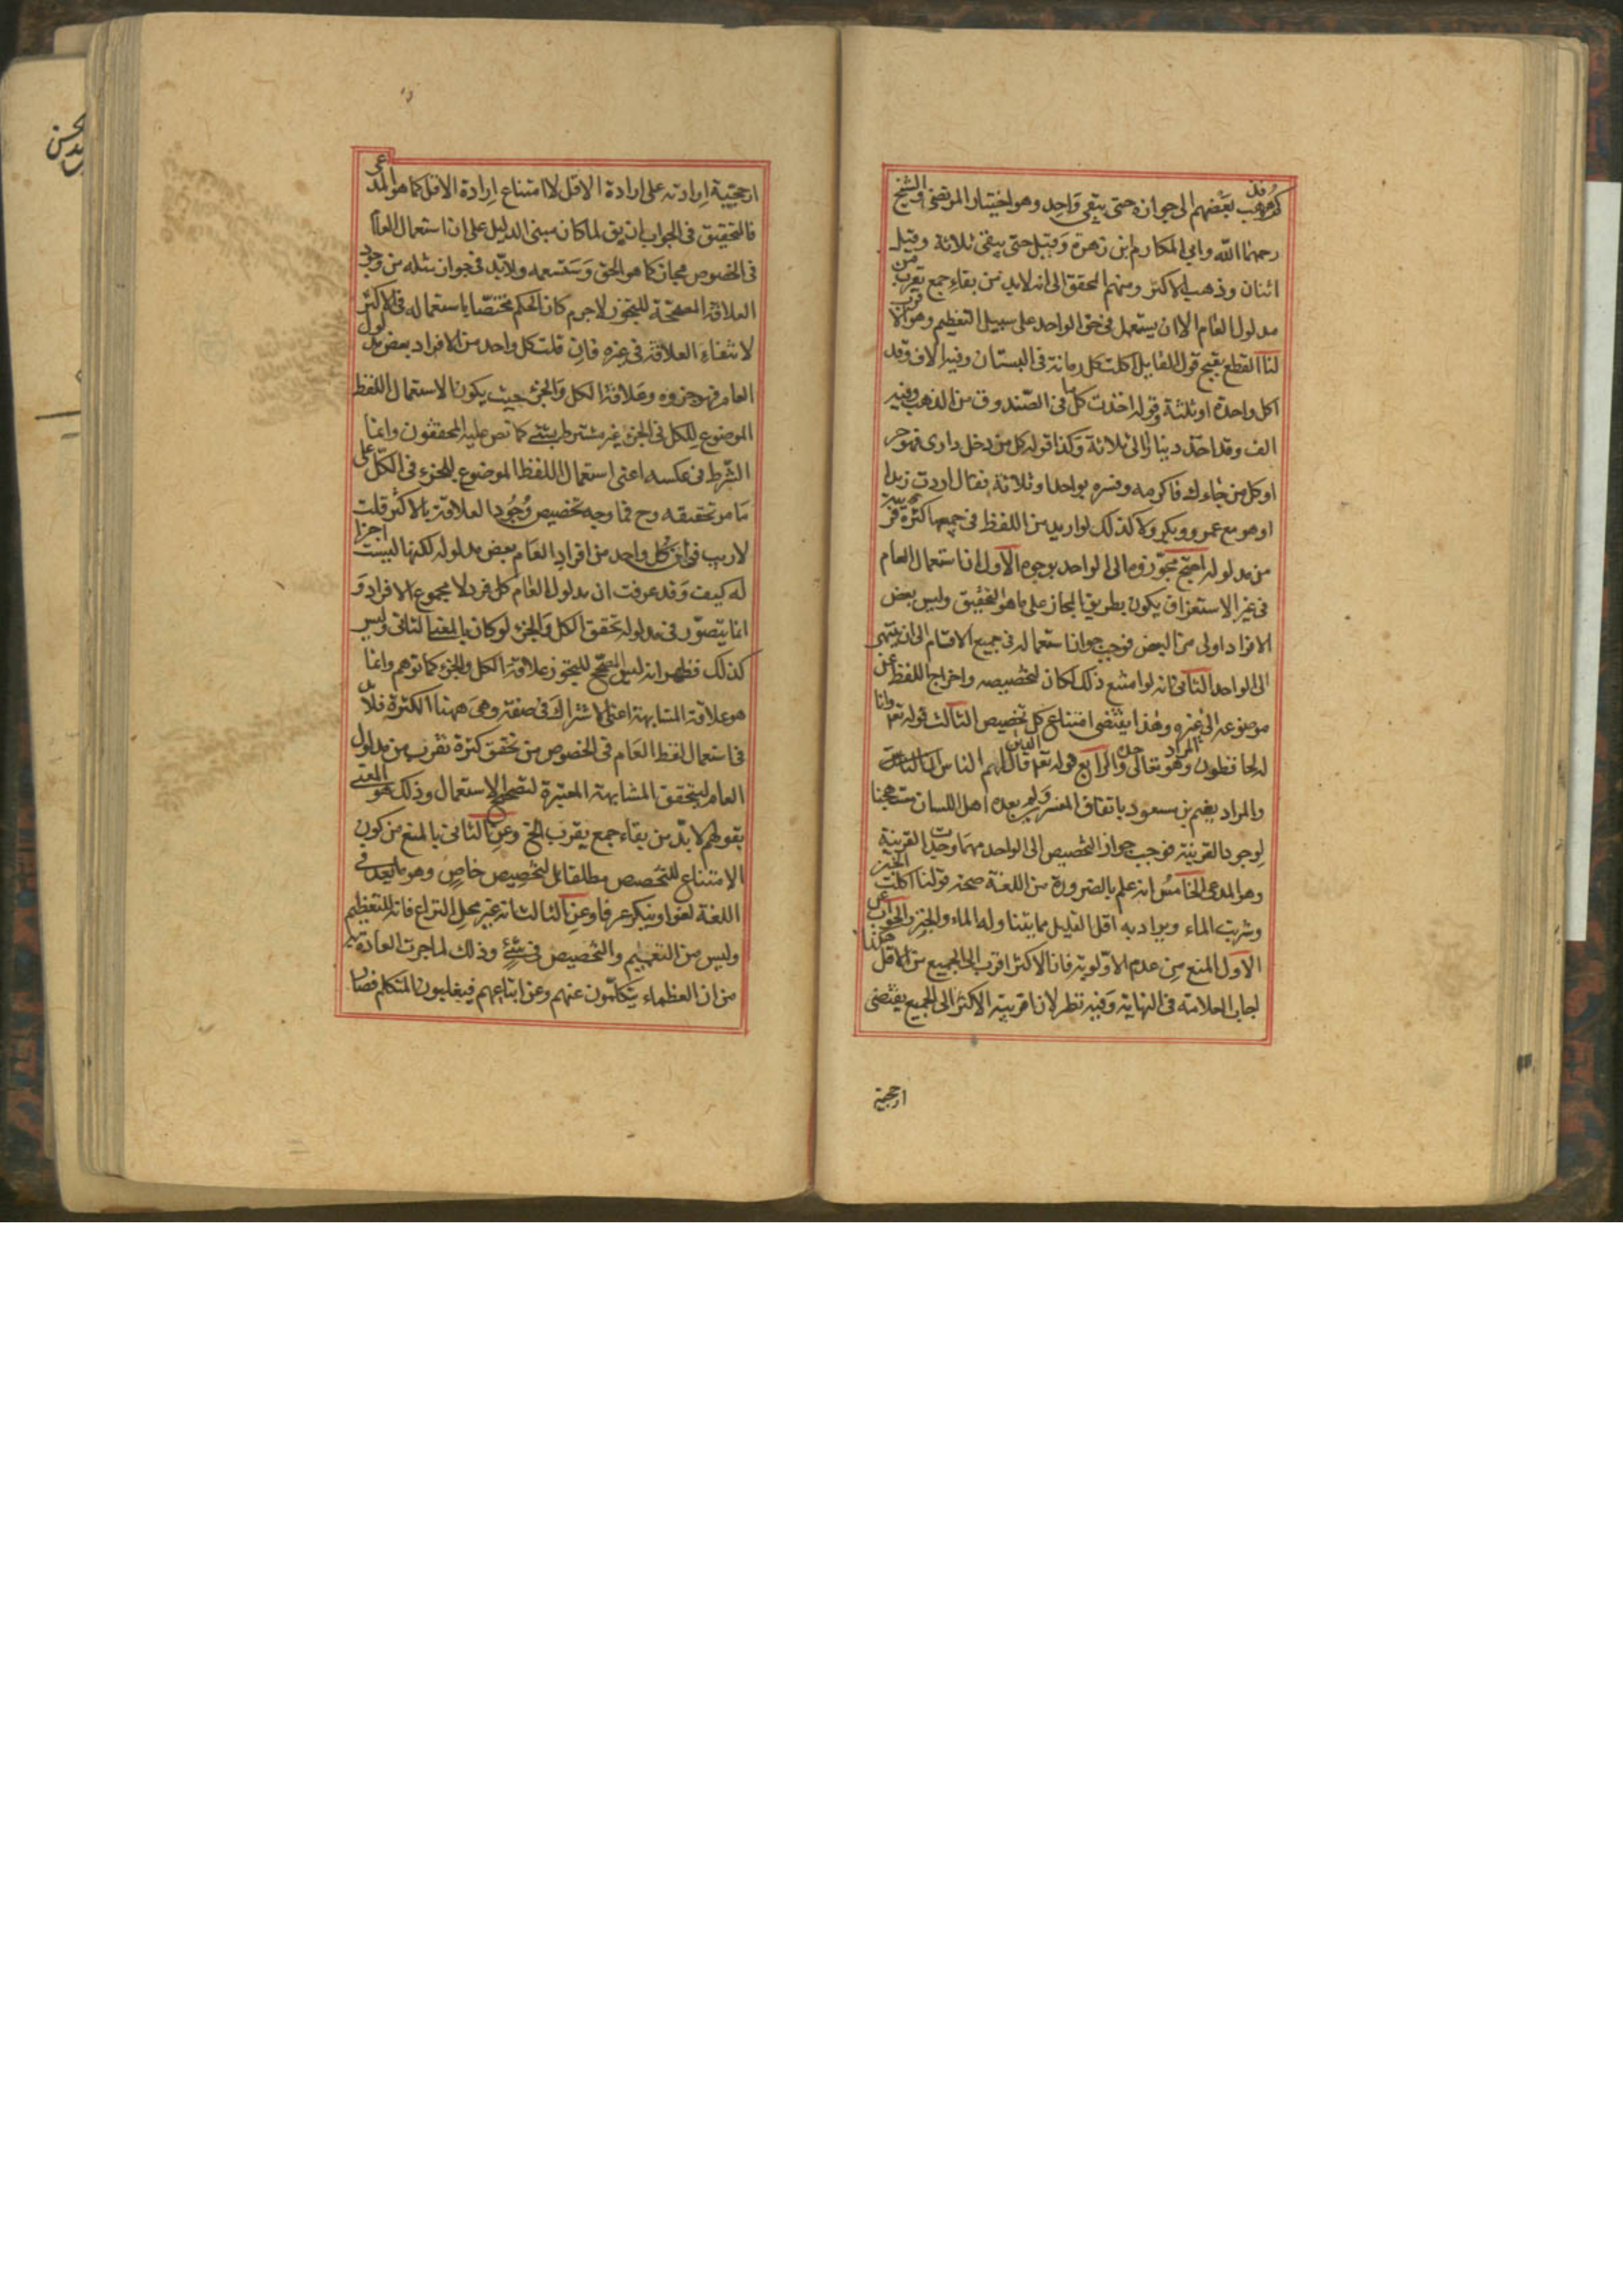 فذهب بعضهم الى جوازه حتى يبقى واحد وهو اختيار المرتضى والشيخ
رحمهما الله وابي المكارم بن زهرة وقيل حتى يبقى ثلاثة وقيل
اثنان وذهب الاكثر ومنهم المحقق الى انه لابد من بقاء جمع يقرب من
مدلول العام الا ان يستعمل في حق الواحد على سبيل التعظيم وهو الاقرب
لنا القطع بقبح قول القايل اكلت كل رمانة في البستان وفيه الاف وقد
اكل واحدة او ثلثة وقوله اخذت كل ما في الصندوق من الذهب وفيه
الف وقد اخذ دينارا الى ثلاثة وكذا قوله كل من دخل داري فهو حر
او كل من جاءك فاكرمه وفسره بواحد او ثلاثة فقال اردت زيدا
او هو مع عمرو وبكر ولا كذلك لو اريد من اللفظ في جميعها كثرة قريبة
من مدلوله احتج مجوزوه الى الواحد بوجوه الاول ان استعمال العام
في غير الاستغراق يكون بطريق المجاز على ما هو التحقيق وليس بعض
الافراد اولى من البعض فوجب جواز استعماله في جميع الاقسام الى ان ينتهي
الى الواحد الثاني انه لو امتنع ذلك لكان لتخصيصه واخراج اللفظ عن
موضوعه الى غيره وهذا يقتضي امتناع كل تخصيص الثالث قوله تعـ وانا
له لحافظون والمراد هو تعالى وحده والرابع قوله تعـ الذين قال لهم الناس ان الناس
والمراد نعيم بن مسعود باتفاق المفسرين ولم يعده اهل اللسان مستهجنا
لوجود القرينة فوجب جواز التخصيص الى الواحد مهما وجدت القرينة
وهو المدعى الخامس انه علم بالضرورة من اللغة صحة قولنا اكلت الخبز
وشربت الماء ويراد به اقل القليل مما يتناوله الماء والخبز والجواب عن
الاول المنع من عدم الاولوية فان الاكثر اقرب الى الجميع من الاقل هكذا
اجاب العلامة في النهاية وفيه نظر لان اقربية الاكثر الى الجميع يقتضي
ارجحية
ارجحية ارادته على ارادة الاقل لا امتناع ارادة الاقل كما هو المدعى
فالتحقيق في الجواب ان يق لما كان مبنى الدليل على ان استعمال العام
في الخصوص مجاز كما هو الحق وستسمعه ولابد في جواز مثله من وجود
العلاقة المصححة للتجوز لاجرم كان الحكم مختصا باستعماله في الاكثر
لانتفاء العلاقة في غيره فان قلت كل واحد من الافراد بعض مدلول
العام فهو جزوه وعلاقة الكل والجزء حيث يكون الاستعمال اللفظ
الموضوع للكل في الجزء غير مشترط بشئ كما نص عليه المحققون وانما
الشرط في عكسه اعني استعمال اللفظ الموضوع للجزء في الكل على
ما مر تحقيقه وح فما وجه تخصيص وجود العلاقة بالاكثر قلت
لاريب في ان كل واحد من افراد العام بعض مدلوله لكنها ليست اجزا
له كيف وقد عرفت ان مدلول العام كل فرد لا مجموع الافراد و
انما يتصور في مدلوله تحقق الكل والجزء لو كان بالمعنى الثاني وليس
كذلك فظهر انه ليس المصحح للتجوز علاقة الكل والجزء كما توهم وانما
هو علاقة المشابهة اعني الاشتراك في صفة وهي ههنا الكثرة فلابد
في استعمال لفظ العام في الخصوص من تحقق كثرة تقرب من مدلول
العام ليتحقق المشابهة المعتبرة لتصحيح الاستعمال وذلك هو المعني
بقولهم لابد من بقاء جمع يقرب الخ وعن الثاني بالمنع من كون
الامتناع للتخصيص مطلقا بل لتخصيص خاص وهو ما يعد في
اللغة لغوا وينكر عرفا وعن الثالث انه غير محل النزاع فانه للتعظيم
وليس من التعميم والتخصيص في شئ وذلك لما جرت العادة به
من ان العظماء يتكلمون عنهم وعن اتباعهم فيغلبون المتكلم فصار